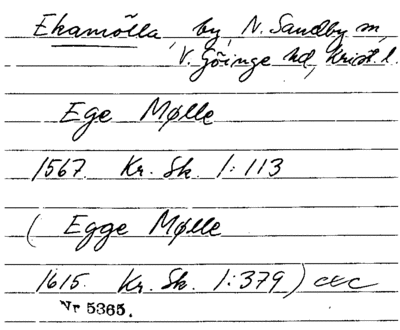 Ekamölla, by, N. Sandby sn,
V. Göinge hd, Krist. l.
Ege Mølle
1567. Kr. Sk. 1:113
( Egge Mølle
1615. Kr. Sk. 1:379)
Nr 5365.